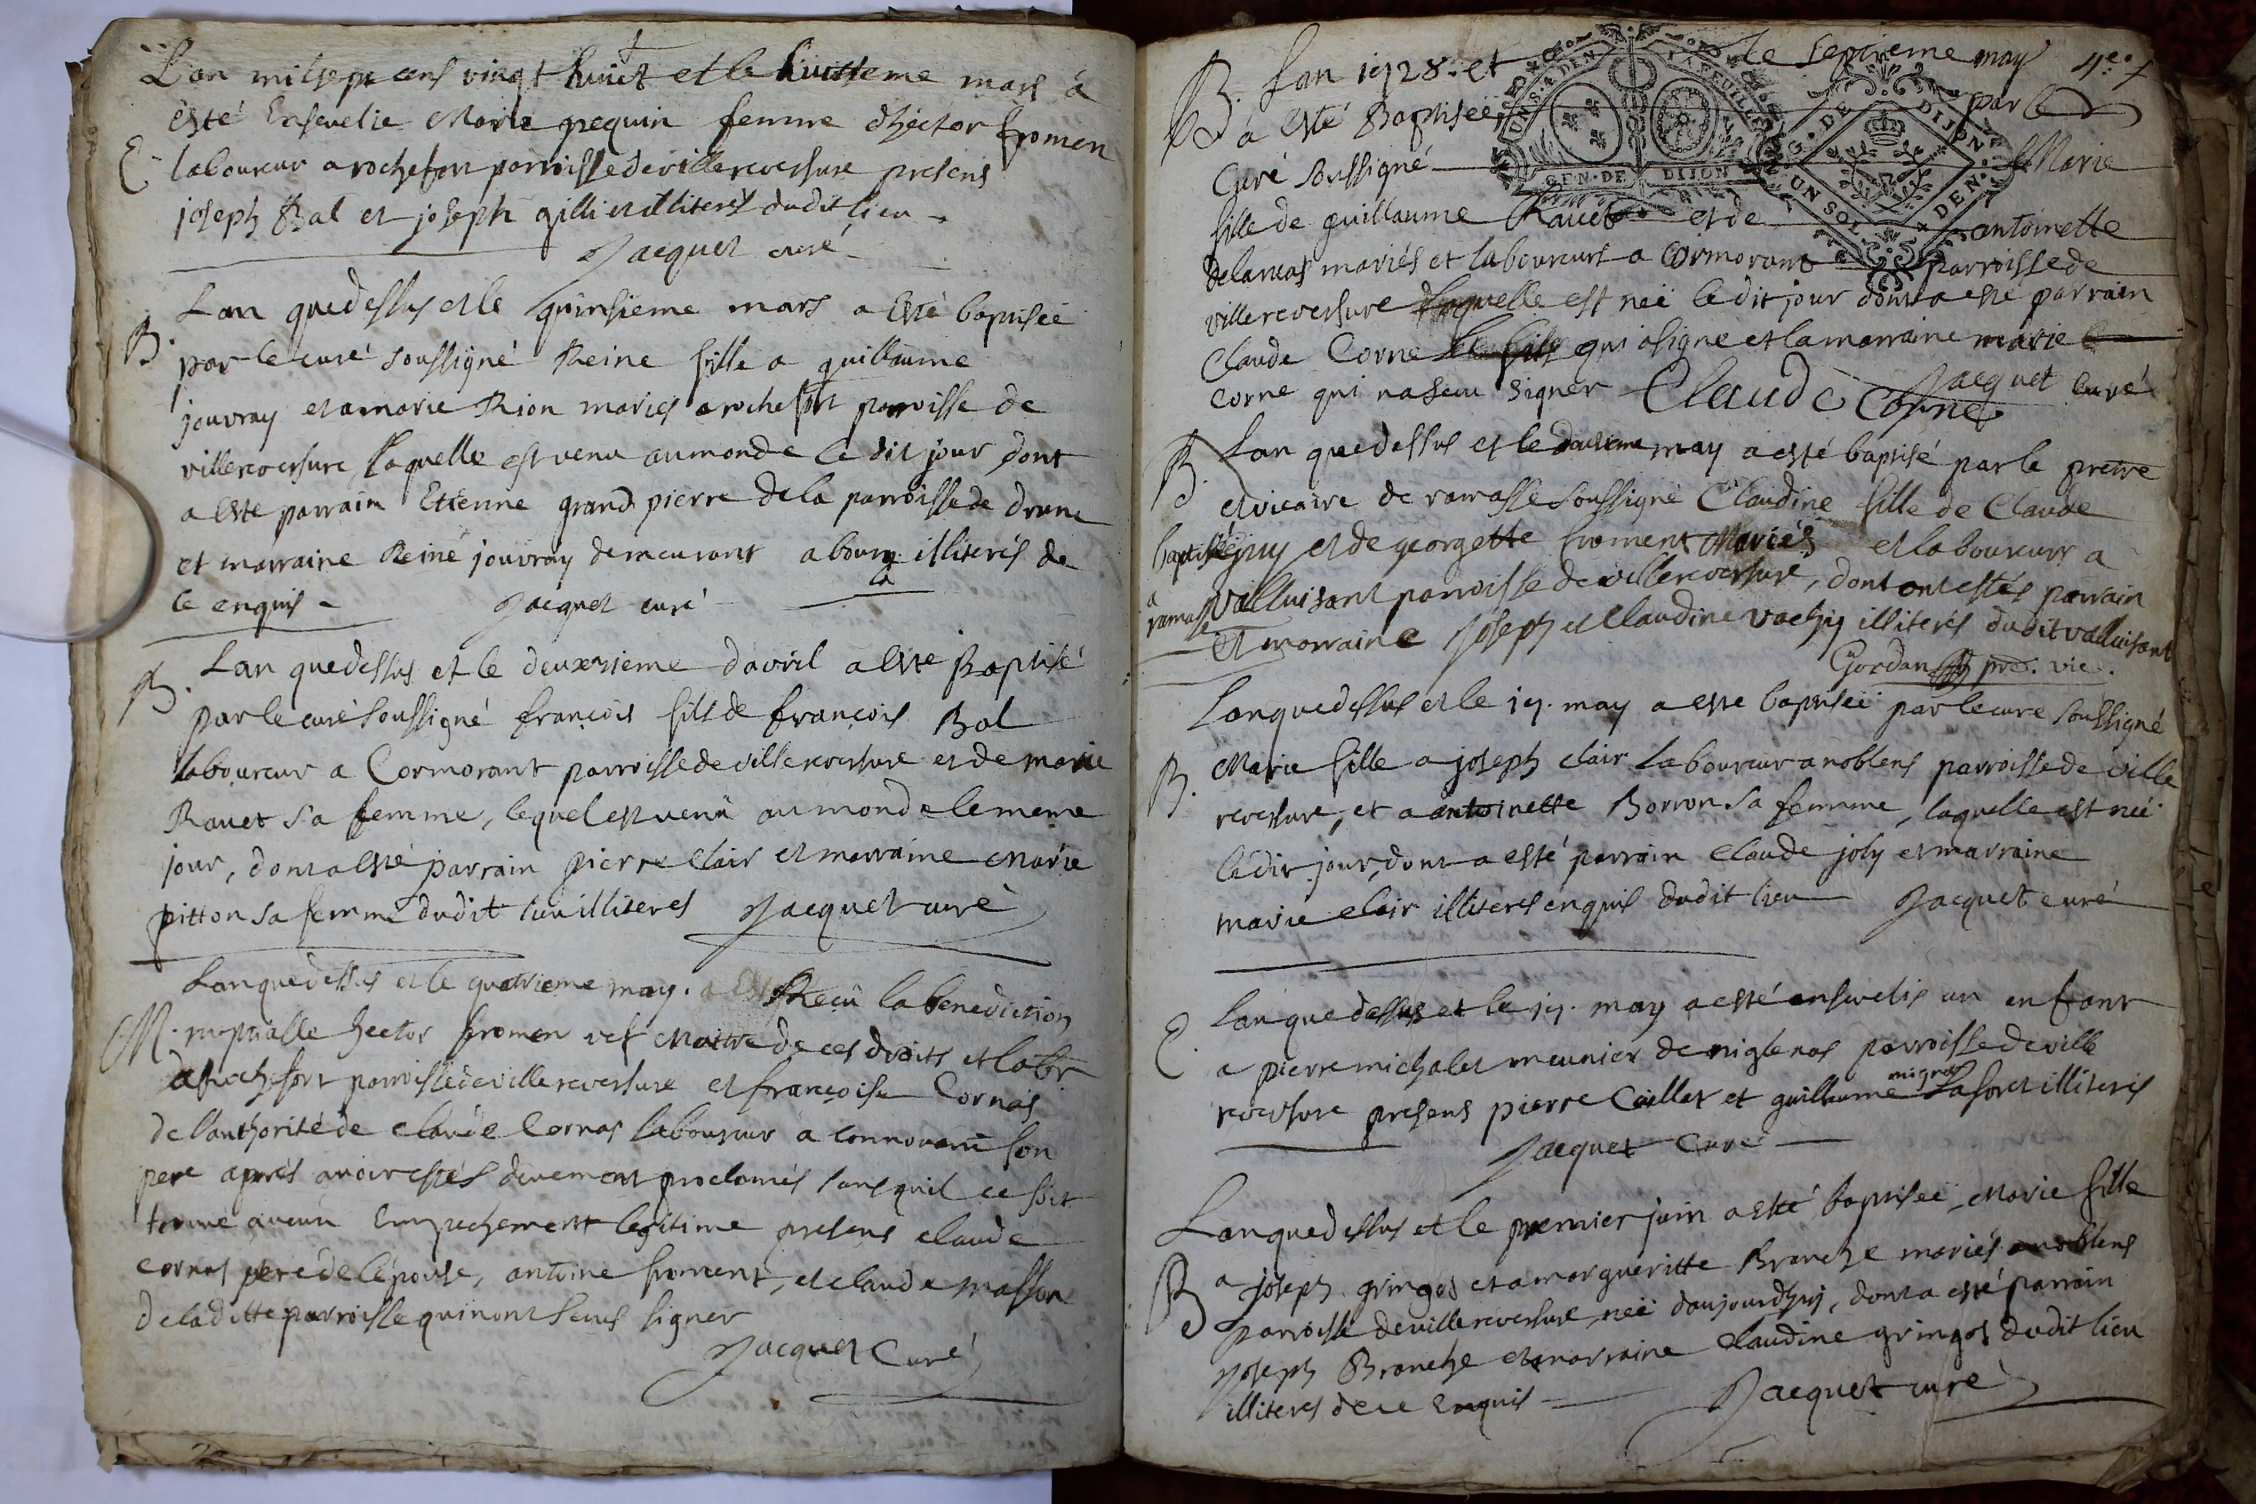 L'an mil sept cens vingt huict et le huittieme mars a
esté Ensevelie Marie pequin femme d'hector fromen
E laboureur a rochefort parroisse de villereversure presens
joseph Bal et joseph gilliet illiterés dudit lieu
Jacquet curé
L'an que dessus et le quinsieme mars a esté baptiseë
B. par le curé soussigné Reine fille a guillaume
jouvray et a marie Rion mariés a rochefort parroisse de
villereversure, laquelle est venu au monde le dit jour dont
a este parrain Etienne grand pierre de la parroisse de drom
et marraine Reine jouvray demeurant a bourg illiterés de
ce enquis Jacquet curé
L'an que dessus et le deuxzieme d'avril a esté Baptisé
B. par le curé soussigné françois fils de françois Bal
laboureur a Cormorant parroisse de villereversure et de marie
Ravet sa femme, lequel est venu au monde le meme
jour, dont a esté parrain pierre clair et marraine Marie
pitton sa femme dudit lieu illiteres Jacquet curé
L'an que dessus et le quatrieme may. Receu la benediction
M. nuptialle hector fromen vef Maitre de ces droits et labr
a rochefort parroisse de villereversure et françoise Cornas
de l'authorité de claude Cornas laboureur a connorant son
pere aprés avoir estés deuement proclamés sans quil ce soit
trouvé aucun Empechement legitime presens claude
cornas pere de l'epouse, antoine froment, et claude masson
de la ditte parroisse qui nont sceus signer
Jacquet Curé
B. L'an 1728. et le septieme may 4e.
a esté Baptiseë par le
Curé soussigné Marie
fille de guillaume Ravet et de antoinette
delaruas mariés et laboureurs a Cormorant parroisse de
villereversure laquelle est neë le dit jour dont a esté parrain
Claude Corne qui a signe et la marraine marie
corne qui na sceu signer Claude Corne Jacquet curé
B. L'an que dessus et le douxieme may a esté baptisé par le pretre
et vicaire de ramasse soussigné Claudine fille de Claude
baptisé guy et de georgette froment Mariés et laboureurs a
a ramasse valluisant parroisse de villereversure, dont ont estés parrain
et marraine Joseph et Claudine vachy illiterés dudit valluisant
Gordan pre. vic.
L'an que dessus et le 17. may a este baptiseë par le curé soussigné
B. Marie fille a joseph clair laboureur a noblens parroisse de ville
reversure, et a antoinette Borron sa femme, laquelle est neë
le dit jour, dont a esté parrain claude joly et marraine
marie clair illiterés enquis dudit lieu Jacquet curé
L'an que dessus et le 17. may a esté ensevelis un enfant
E. a pierre michalet meunier de niglenas parroisse de ville
reversure presens pierre Caillat et guillaume migra Lafont illiterés
Jacquet Curé
L'an que dessus et le premier juin a esté baptiseë, Marie fille
B a joseph gringos et a margueritte Branche mariés a noblens
parroisse de villereversure, neë daujourdhuy, dont a esté parrain
joseph Branche et marraine claudine gringos dudit lieu
illiteres de ce enquis Jacquet curé
GEN. DE DIJON
G. DE DIJON
UN SOL DEN.